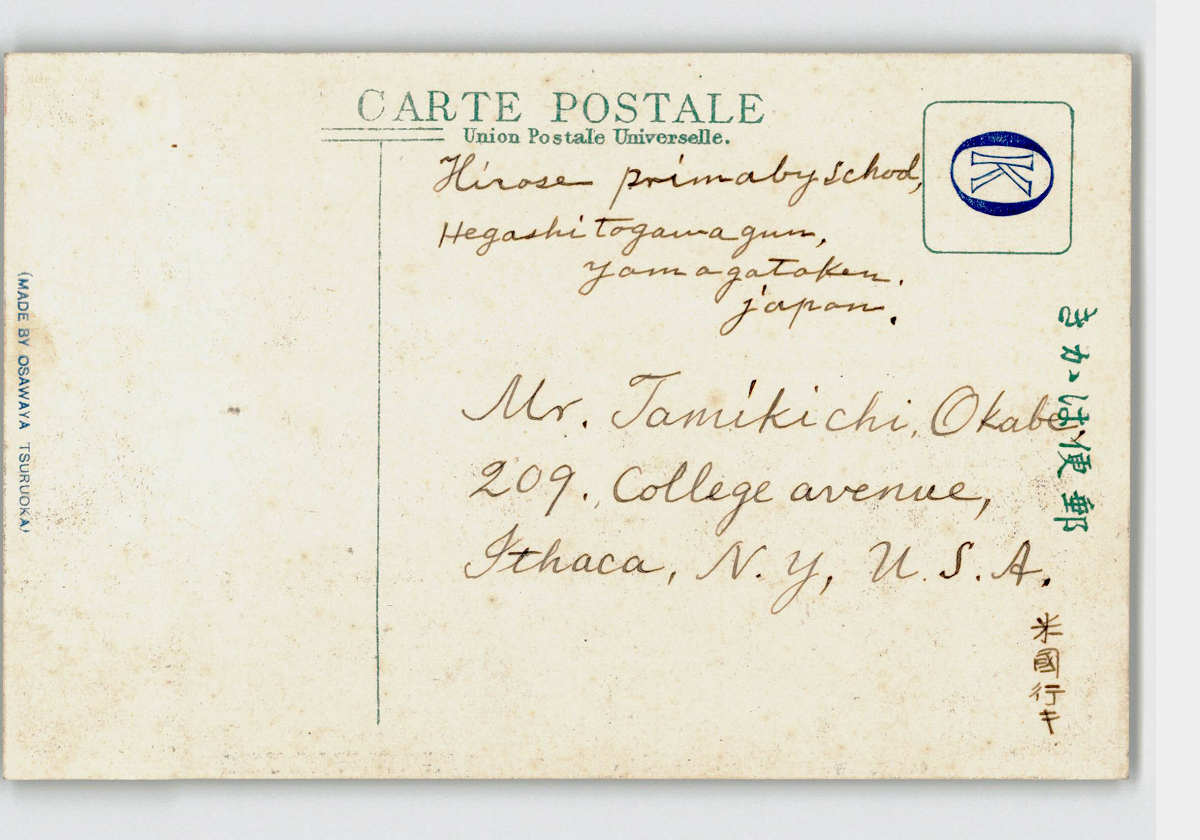 CARTE POSTALE
Union Postale Universelle.
K
Hirose primaby school,
Hegashitogawagun,
yamagataken.
japan.
Mr. Tamikichi, Okabe,
209., College avenue,
Ithaca, N. Y, U. S. A.
きかゝは便郵
米國行キ
(MADE BY OSAWAYA TSURUOKA)